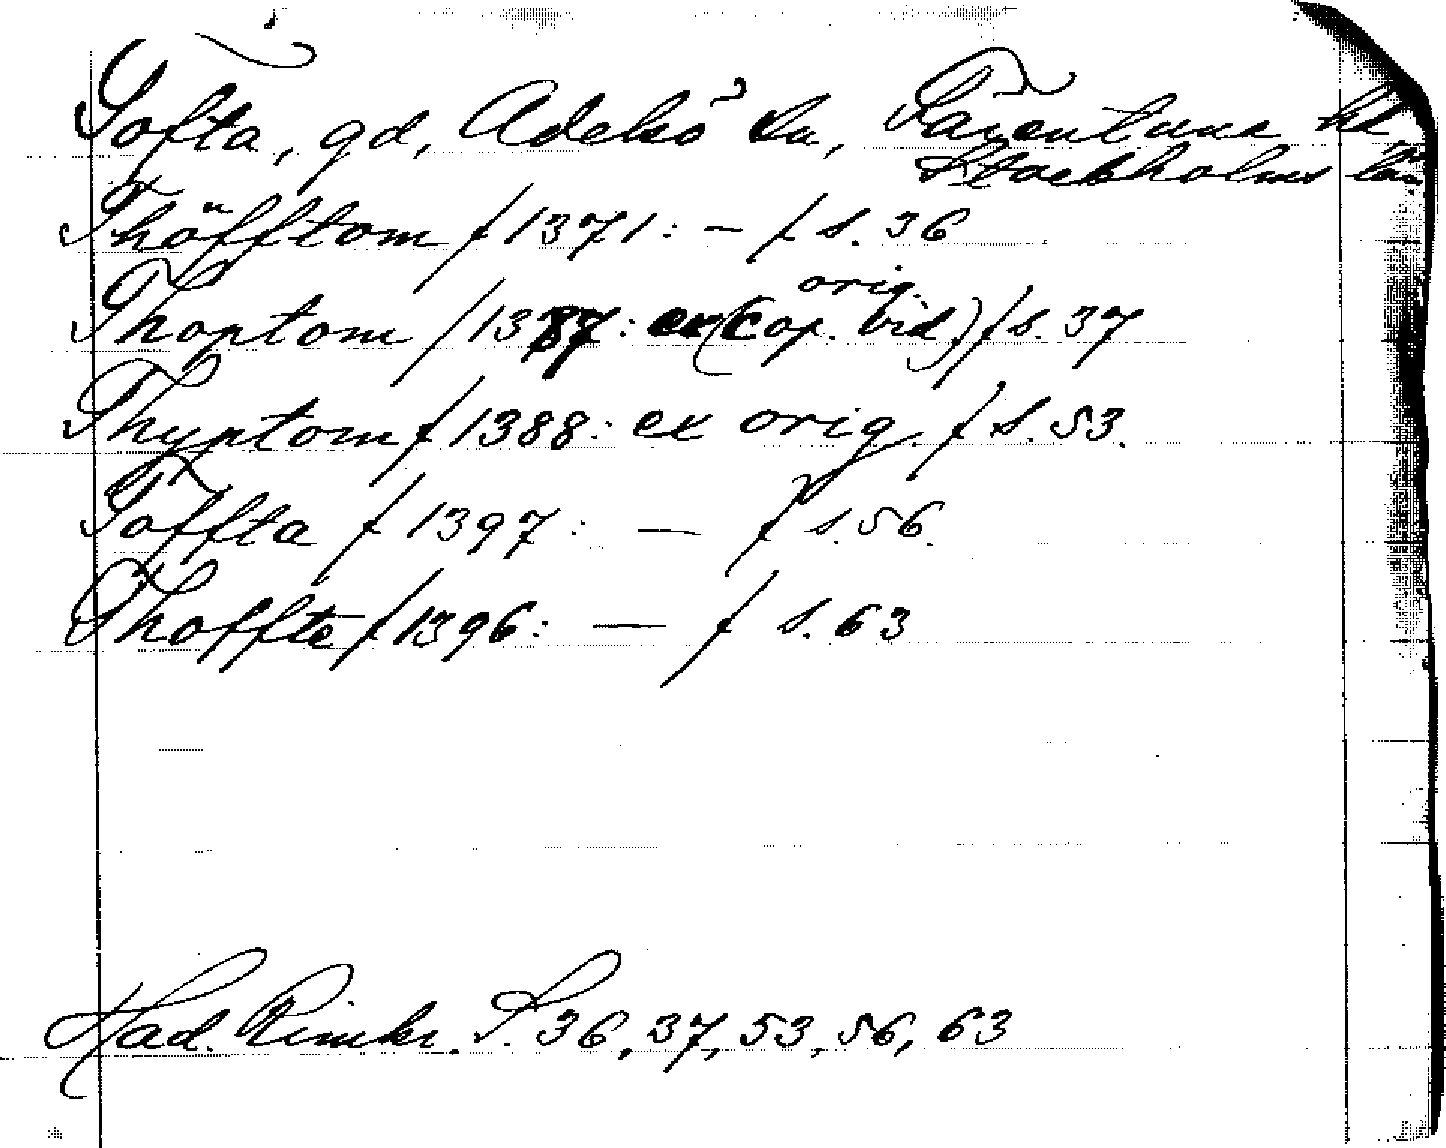 Tofta, gd, Adelsö sn, Färentuna hd,
Stockholms län
Thöfftom / 1371: — / s. 36
orig.
Thoptom / 1387: (cop. vid) / s. 37
Thyptom / 1388: ex orig. / s. 53.
Toffta / 1397: — / s. 56.
Thoffte / 1396: — / s. 63
Had. Rimkr. S. 36, 37, 53, 56, 63